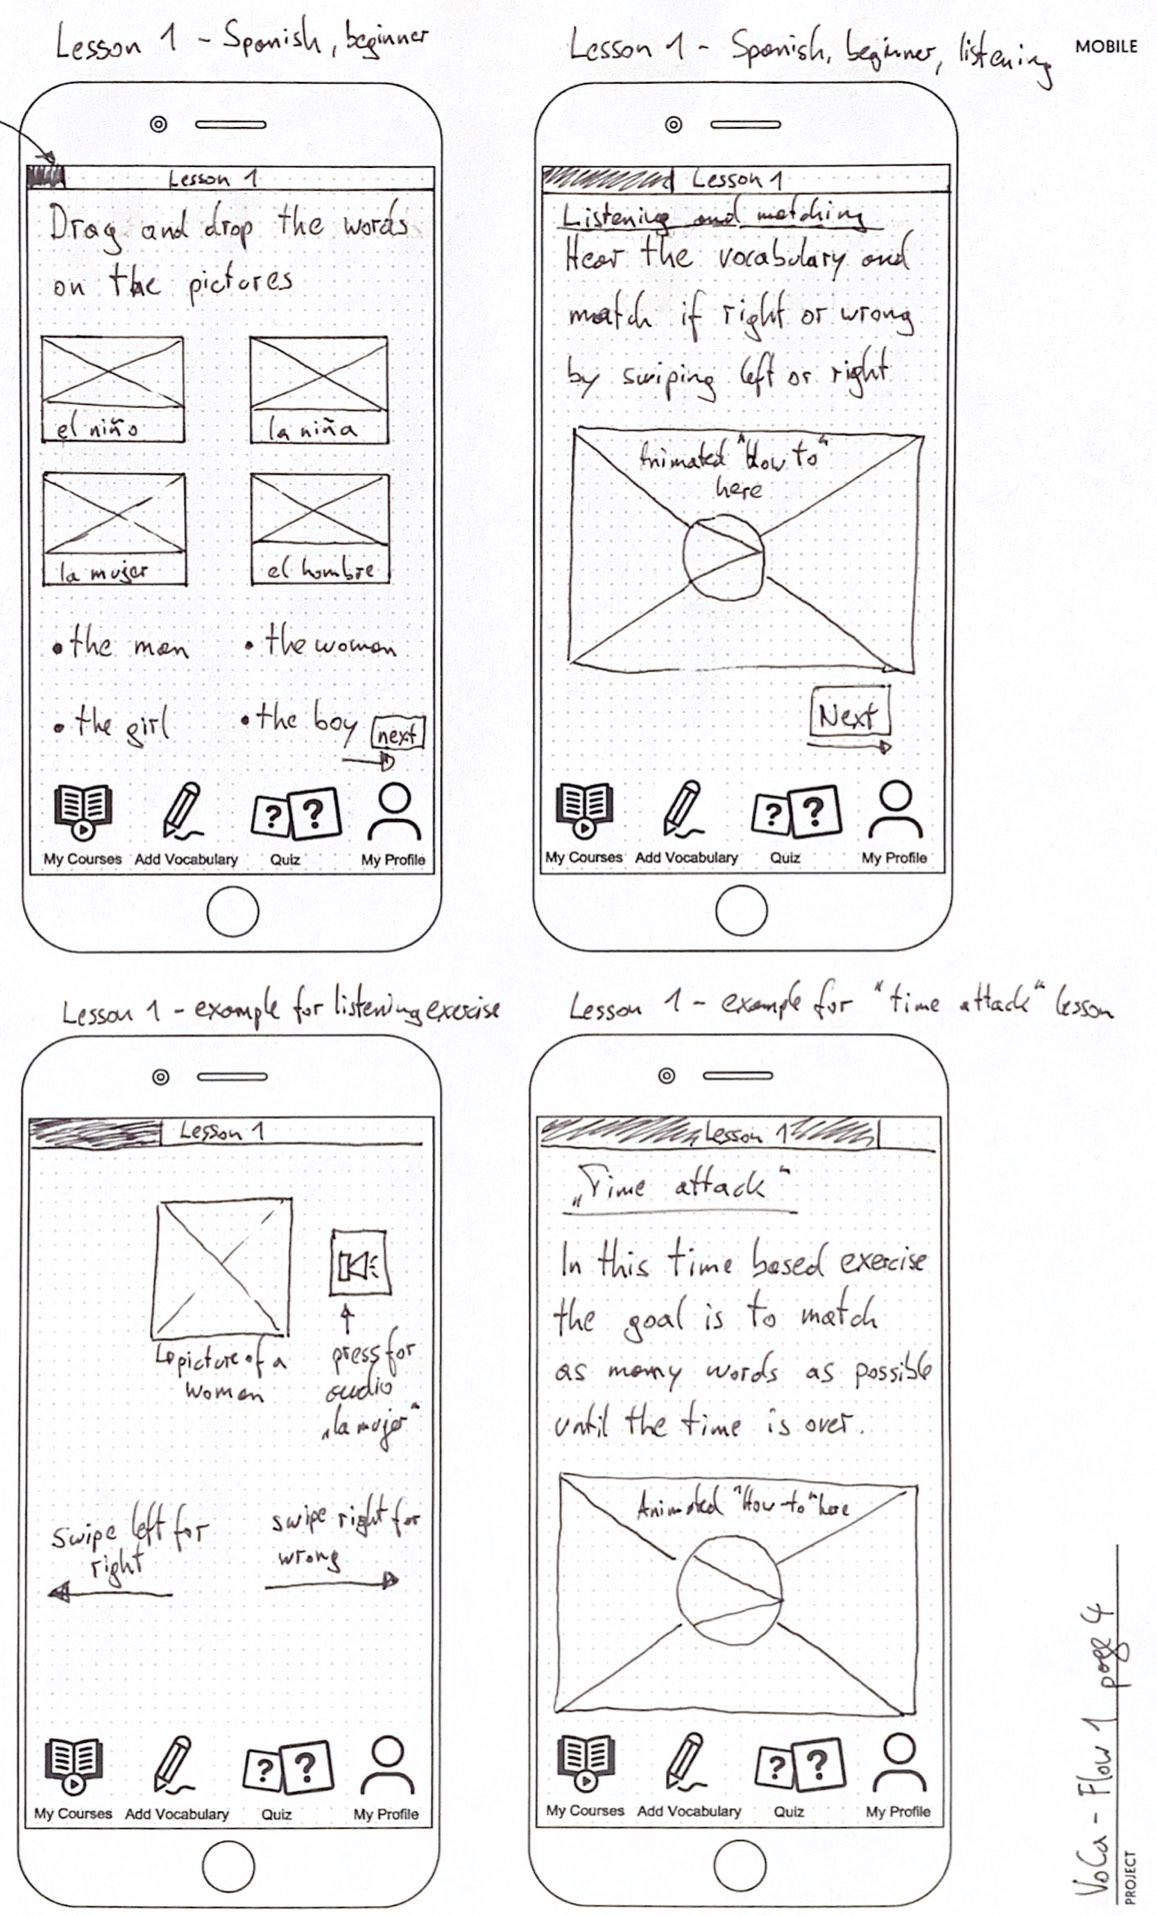 Lesson 1 - Spanish, beginner
Lesson 1 - Spanish, beginner, listening
MOBILE
Lesson 1
Drag and drop the words
on the pictures
el niño
la niña
la mujer
el hombre
• the man
• the woman
• the girl
• the boy
next
My Courses
Add Vocabulary
? ?
Quiz
My Profile
Lesson 1
Listening and matching
Hear the vocabulary and
match if right or wrong
by swiping left or right
Animated "How to"
here
Next
My Courses
Add Vocabulary
? ?
Quiz
My Profile
Lesson 1 - example for listening exercise
Lesson 1 - example for "time attack" lesson
Lesson 1
picture of a
woman
press for
audio
„la mujer"
swipe left for
right
swipe right for
wrong
My Courses
Add Vocabulary
? ?
Quiz
My Profile
Lesson 1
„Time attack"
In this time based exercise
the goal is to match
as many words as possible
until the time is over.
Animated "How-to" here
My Courses
Add Vocabulary
? ?
Quiz
My Profile
VoCa - Flow 1 page 4
PROJECT